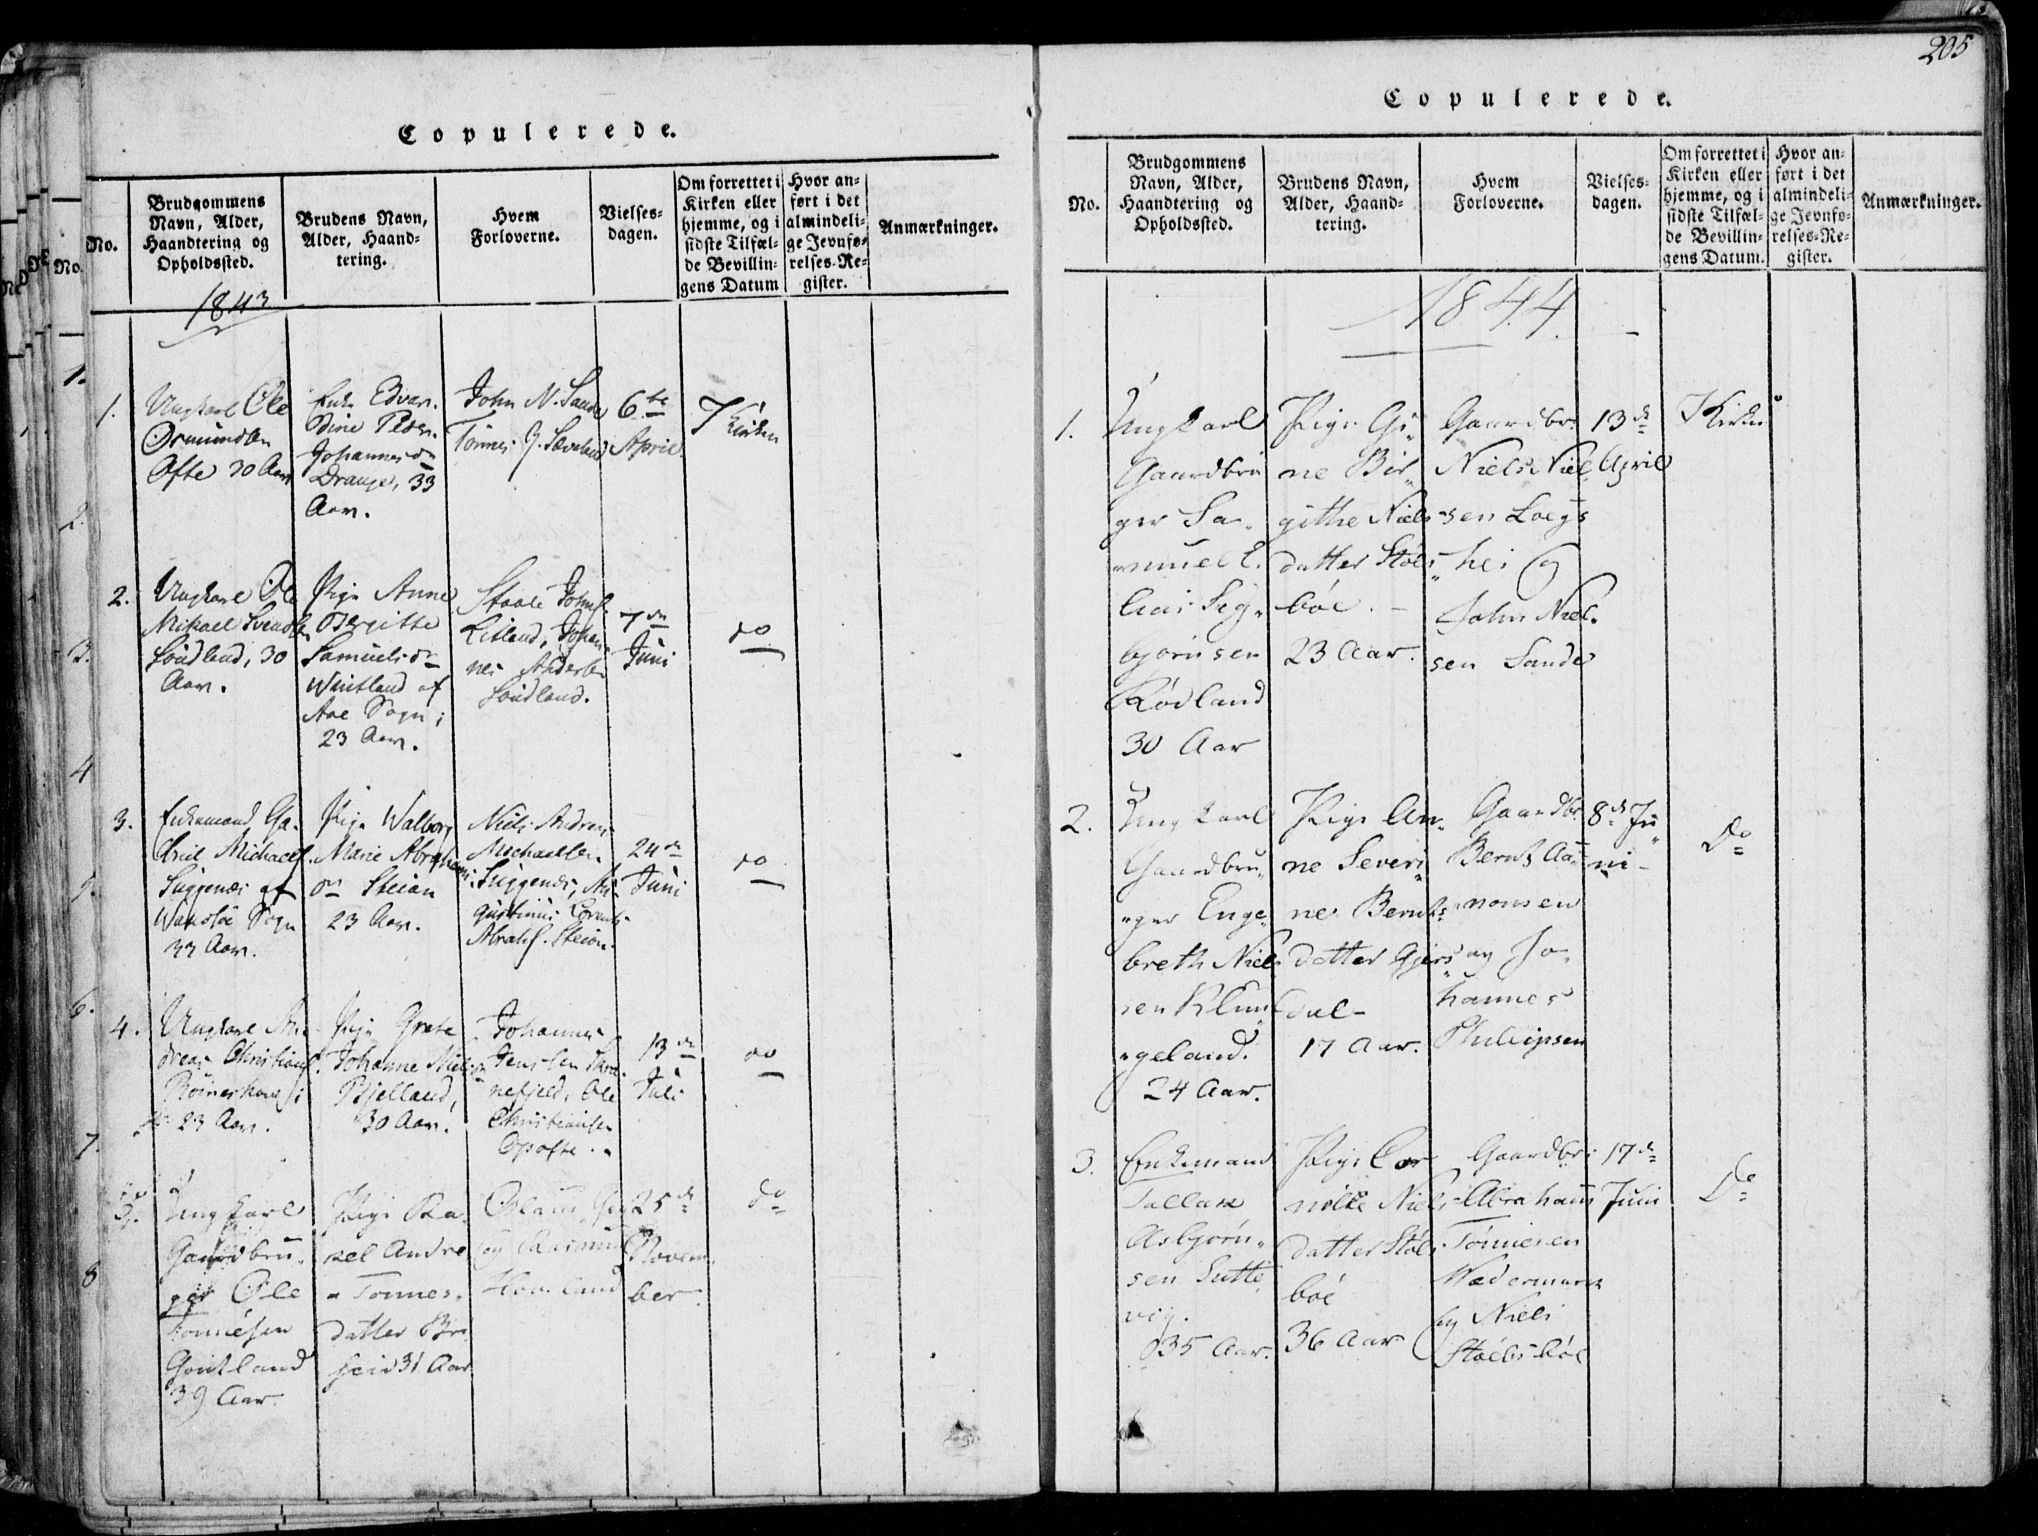 205
Copulerede.
No.
Brudgommens
Navn, Alder,
Haandtering og
Opholdssted.
Brudens Navn,
Alder, Haand-
tering.
Hvem
Forloverne.
Vielses-
dagen.
Om forrettet i
Kirken eller
hjemme, og i
sidste Tilfæl-
de Bevillin-
gens Datum
Hvor an-
ført i det
almindeli-
ge Jevnfø-
relses-Re-
gister.
Anmærkninger.
1843
1.
Ungkarl Ole
Osmundsen
Ofte 30 Aar
Enke Edvar-
dine Peder
Johannesdr
Drange, 33
Aar.
John N. Sande
Tönnes
6te
April
I Kirken
2.
Ungkarl Ole
Mikael Svends.
30
Aar.
Pige Anne
Bergitte
Samuelsdr
af
Aae Sogn,
23 Aar.
Staale Johns.
Johan-
nes
7de
Juni
do
3.
Enkemand Ga-
briel Michaels.
af
Sogn
33 Aar.
Pige Walborg
Marie Abrahams
dr Steian
23 Aar.
Niels Andreas
Michaelsen
24de
Juni
do
4.
Ungkarl An-
dreas Christians.
23 Aar.
Pige Grete
Johanne Nielsdr
Bjelland,
30 Aar.
Johannes
Jenssen
nefjeld, Ole
Christiansen
Opofte.
13de
Juli
do
5.
Ungkarl
Gaardbru-
ger Ole
Tönnesen
39 Aar.
Pige Ra-
kel Andre
a Tönnes-
datter
31 Aar
og Rasmus
25de
Novem-
ber
do
Copulerede.
No.
Brudgommens
Navn, Alder,
Haandtering og
Opholdssted.
Brudens Navn,
Alder, Haand-
tering.
Hvem
Forloverne.
Vielses-
dagen.
Om forrettet i
Kirken eller
hjemme, og i
sidste Tilfæl-
de Bevillin-
gens Datum.
Hvor an-
ført i det
almindeli-
ge Jevnfø-
relses-Re-
gister.
Anmærkninger.
1844
1.
Ungkarl
Gaardbru
ger Sa-
muel E-
lias Sig-
bjørnsen
Rødland
30 Aar
Pige Gi-
ne Bir-
githe Niels
datter Støls
bøe.
23 Aar.
Gaardbr:
Niels Niel-
sen Loegs
hei og
John Niel-
sen Sande
13de
April
Kirke
2.
Ungkarl
Gaardbru-
ger Enge-
breth Niel-
sen Klun-
geland.
24 Aar.
Pige An-
ne Severi-
ne Bernts-
datter Gjers-
dal
17 Aar.
Gaardbr.
Bernt Aa-
nonsen
og Jo-
hannes
Philipsen
8de Ju-
ni
Do
3.
Enkemand
Tallak
Asbjørn-
sen Sutte
vig.
35 Aar.
Pige Cor
nölle Niels-
datter Støls
bøe
36 Aar
Gaardbr:
Abraham
Tönnesen
og Niels
Stølsbøe
17de
Juni
Do